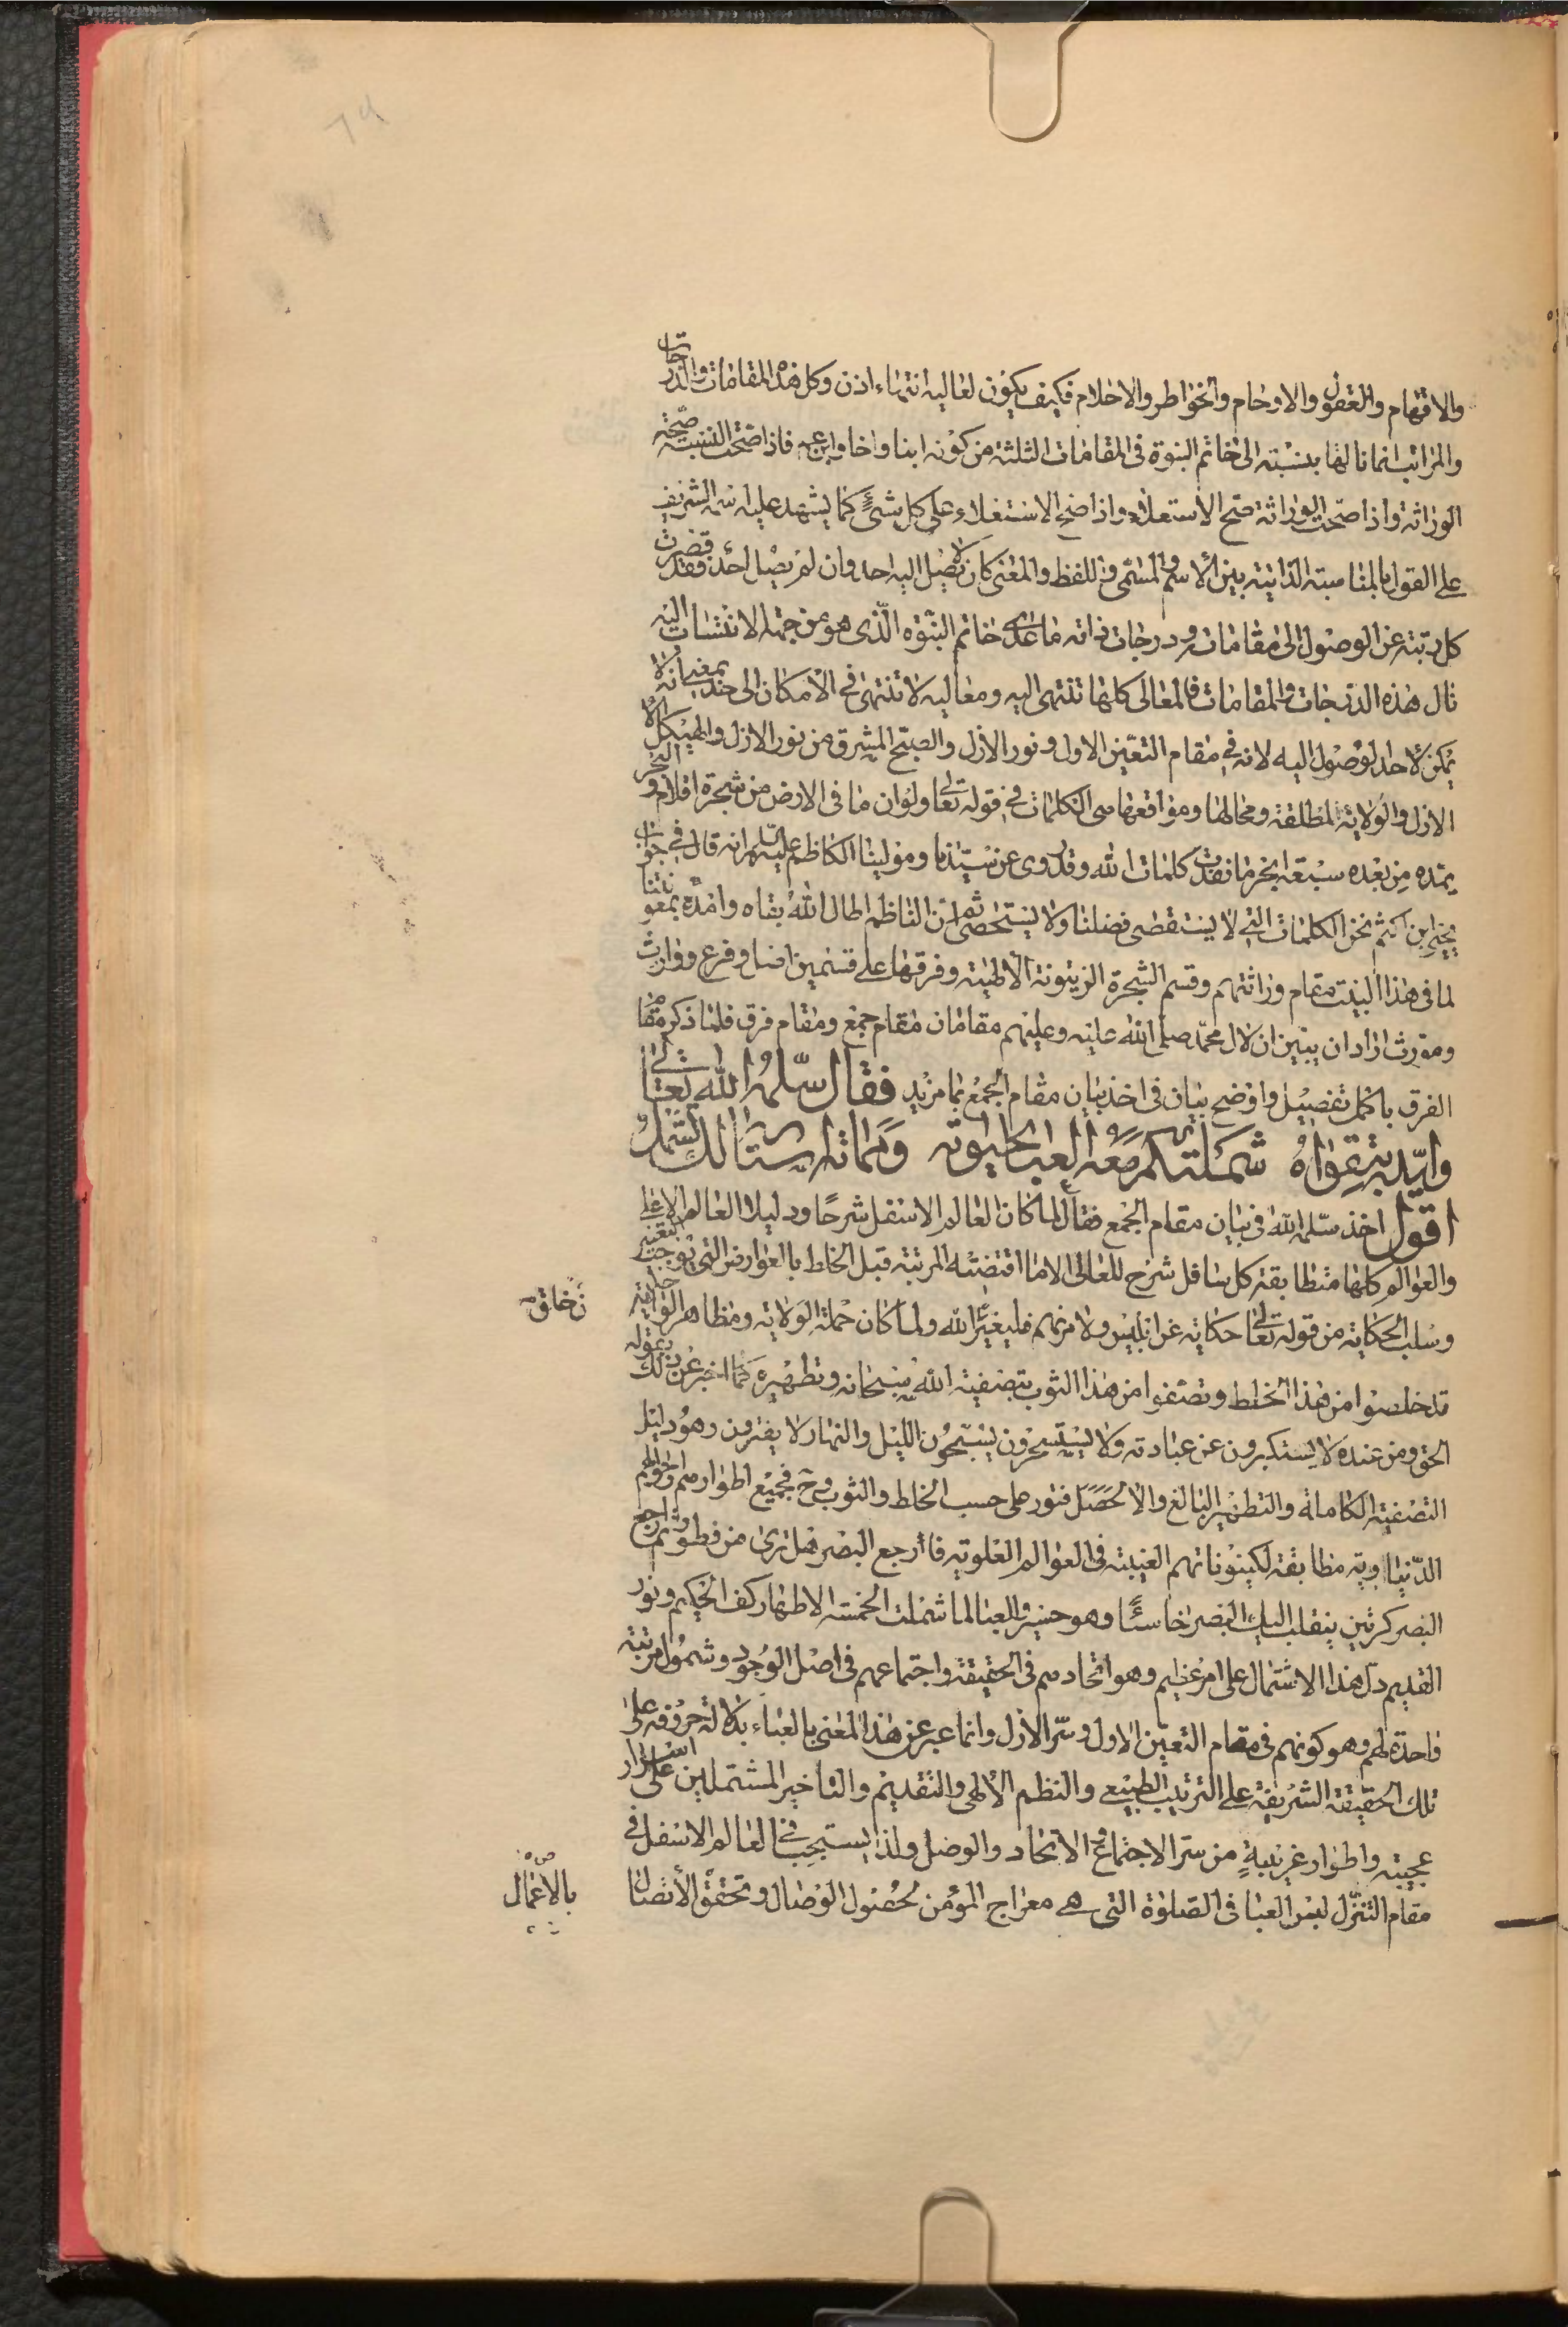 والافهام والعقول والاوهام والخواطر والاحلام فكيف يكون لمعاليه انتهاء اذن وكل هذه المقامات والدرجات
والمراتب انما نالها بنسبته الى خاتم النبوة فى المقامات الثلثة من كونه ابنا واخا وابن عم فاذا صحت النسبة صحة
الوراثة واذا صحت الوراثة صح الاستعلاء واذا صح الاستعلاء على كل شئ كما يشهد عليه اسمه الشريف
على القول بالمناسبة الذاتية بين الاسم والمسمى واللفظ والمعنى كان لا يصل اليه احد وان لم يصل احد فقد قصرت
كل رتبة عن الوصول الى مقامات ودرجات ذاته ما عدى خاتم النبوة الذى هو من جهة الانتساب اليه
نال هذه الدرجات والمقامات فالمعالى كلها تنتهى اليه ومعاليه لا تنتهى فى الامكان الى حد بمعنى انه لا
يمكن لاحد الوصول اليه لانه فى مقام التعين الاول ونور الازل والصبح المشرق من نور الازل والهيكل الا
الازل والولاية المطلقة ومحالها ومواقعها هى الكلمات فى قوله تعالى ولو ان ما فى الارض من شجرة اقلام والبحر
يمده من بعده سبعة ابحر ما نفدت كلمات الله وقد روى عن سيدنا ومولينا الكاظم عليه السلام انه قال فى جواب
يحيى ابن اكثم نحن الكلمات التى لا يستقصى فضلنا ولا يستحصى ثم ان الناظم اطال الله بقاه وامده بمعونته
لما فى هذا البيت مقام وراثتهم وقسم الشجرة الزيتونة الالهية وفرقها على قسمين اصل وفرع ووارث
ومورث اراد ان يبين ان لال محمد صلى الله عليه وعليهم مقامان مقام جمع ومقام فرق فلما ذكر مقام
الفرق باكمل تفصيل واوضح بيان فى اخذ بيان مقام الجمع بما مزيد فقال سلمه الله تعالى
وايده بتقواه شملتكم معه العبا لك الشمل
اقول اخذ سلمه الله فى بيان مقام الجمع فقال لما كان العالم الاسفل شرحا ودليلا للعالم الاعلى
والعوالم كلها متطابقة كل سافل شرح للعالى الا ما اقتضته المرتبة قبل الخلط بالعوارض التى توجب التغيير
وسلب الحكاية من قوله تعالى حكاية عن ابليس ولامرنهم فليغيرن خلق الله ولما كان حملة الولاية ومظاهر الوحدانية
قد خلصوا من هذا الخلط وتصفوا من هذا الثوب بتصفية الله سبحانه وتطهيره كما اخبر عن ذلك بقوله
الحق ومن عنده لا يستكبرون عن عبادته ولا يستحسرون يسبحون الليل والنهار لا يفترون وهو دليل
التصفية الكاملة والتطهير البالغ والا لحصل فتور على حسب الخلط والثوب وح فجميع اطوارهم واحوالهم
الدنياوية مطابقة لكينوناتهم الغيبية فى العوالم العلوية فارجع البصر هل ترى من فطور ثم ارجع
البصر كرتين ينقلب اليك البصر خاسئا وهو حسير والعبا لما شملت الخمسة الاطهار كف الحكيم ونور
القديم دل هذا الاشتمال على امر عظيم وهو اتحادهم فى الحقيقة واجتماعهم فى اصل الوجود وشمول مرتبة
واحدة لهم وهو كونهم فى مقام التعين الاول وسر الازل وانما عبر عن هذا المعنى بالعباء بدلالة حروفه على
تلك الحقيقة الشريفة على الترتيب الطبيعى والنظم الالهى والتقديم والتاخير المشتملين على اسرار
عجيبة واطوار غريبة من سر الاجتماع والاتحاد والوصل ولذا يستحب فى العالم الاسفل فى
مقام التنزل لبس العبا فى الصلوة التى هى معراج المؤمن لحصول الوصال وتحقق الاتصال
بالاعمال